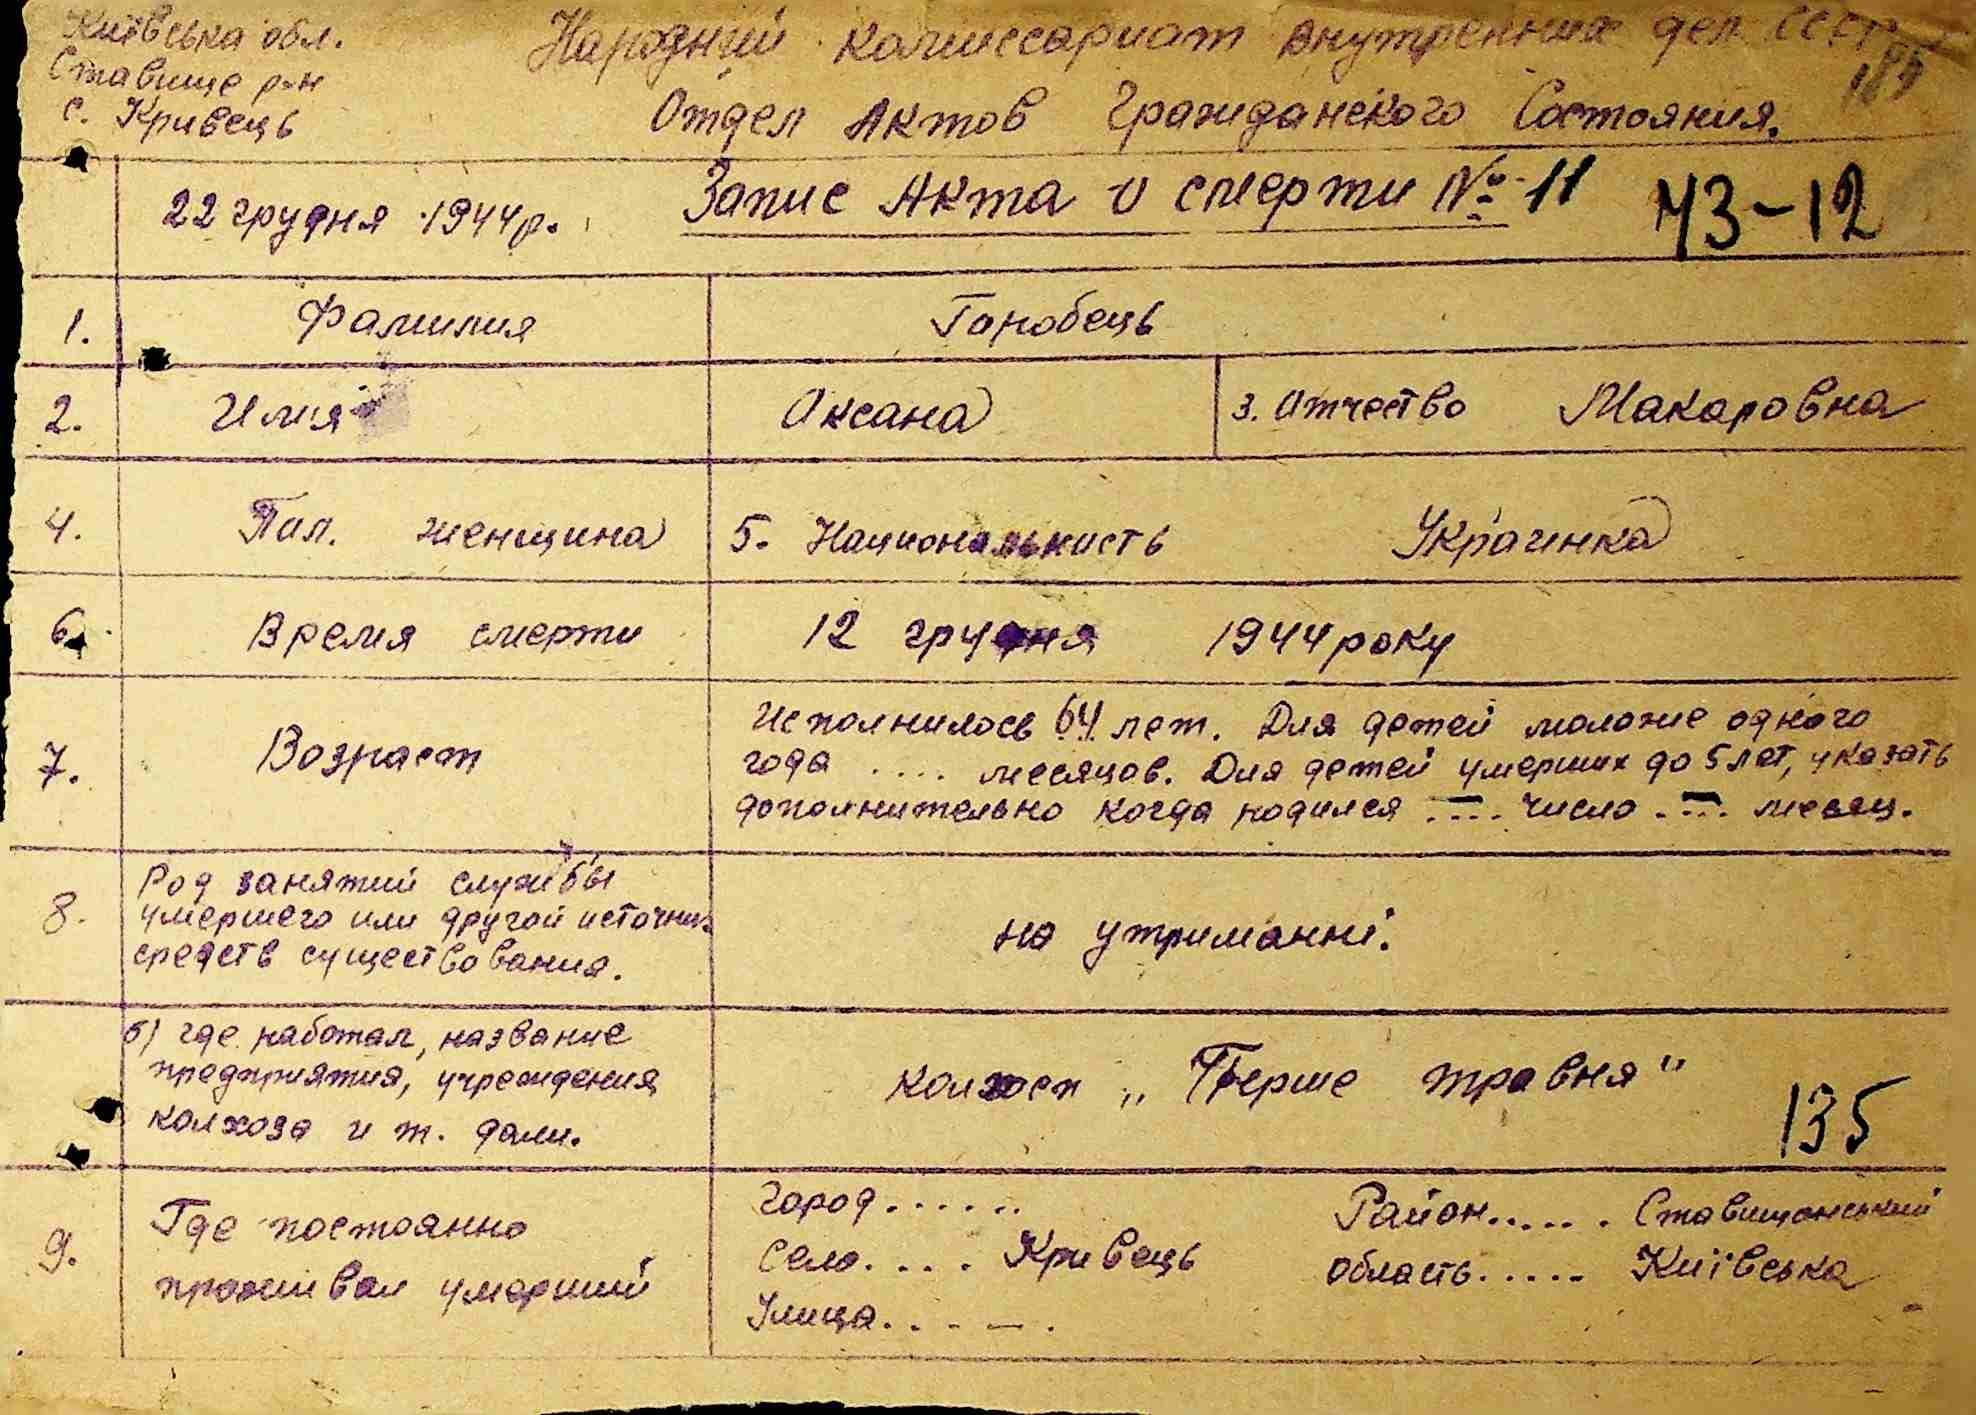 Київська обл.
Ставище р-н
с. Кривець
Народний комиссариат внутренних дел СССР
Отдел Актов Гражданского Состояния.
22 грудня 1944р.
Запис Акта о смерти № 11
43-12
1. Фамилия
Горобець
2. Имя
Оксана
3. Отчество Макаровна
4. Пол. женщина
5. Национальность Украинка
6. Время смерти
12 грудня 1944 року
7. Возраст
Исполнилось 64 лет. Для детей моложе одного
года .... месяцов. Для детей умерших до 5 лет, указать
дополнительно когда родился .... число .... месяц.
8. Род занятий службы
умершего или другой источник
средств существования.
на утриманні.
б) где работал, название
предприятия, учреждения
колхоза и т. дали.
колхосп „Перше травня"
135
9. Где постоянно
проживал умерший
Город......
Село.... Кривець
Улица.....
Район...... Ставищанський
область..... Київська